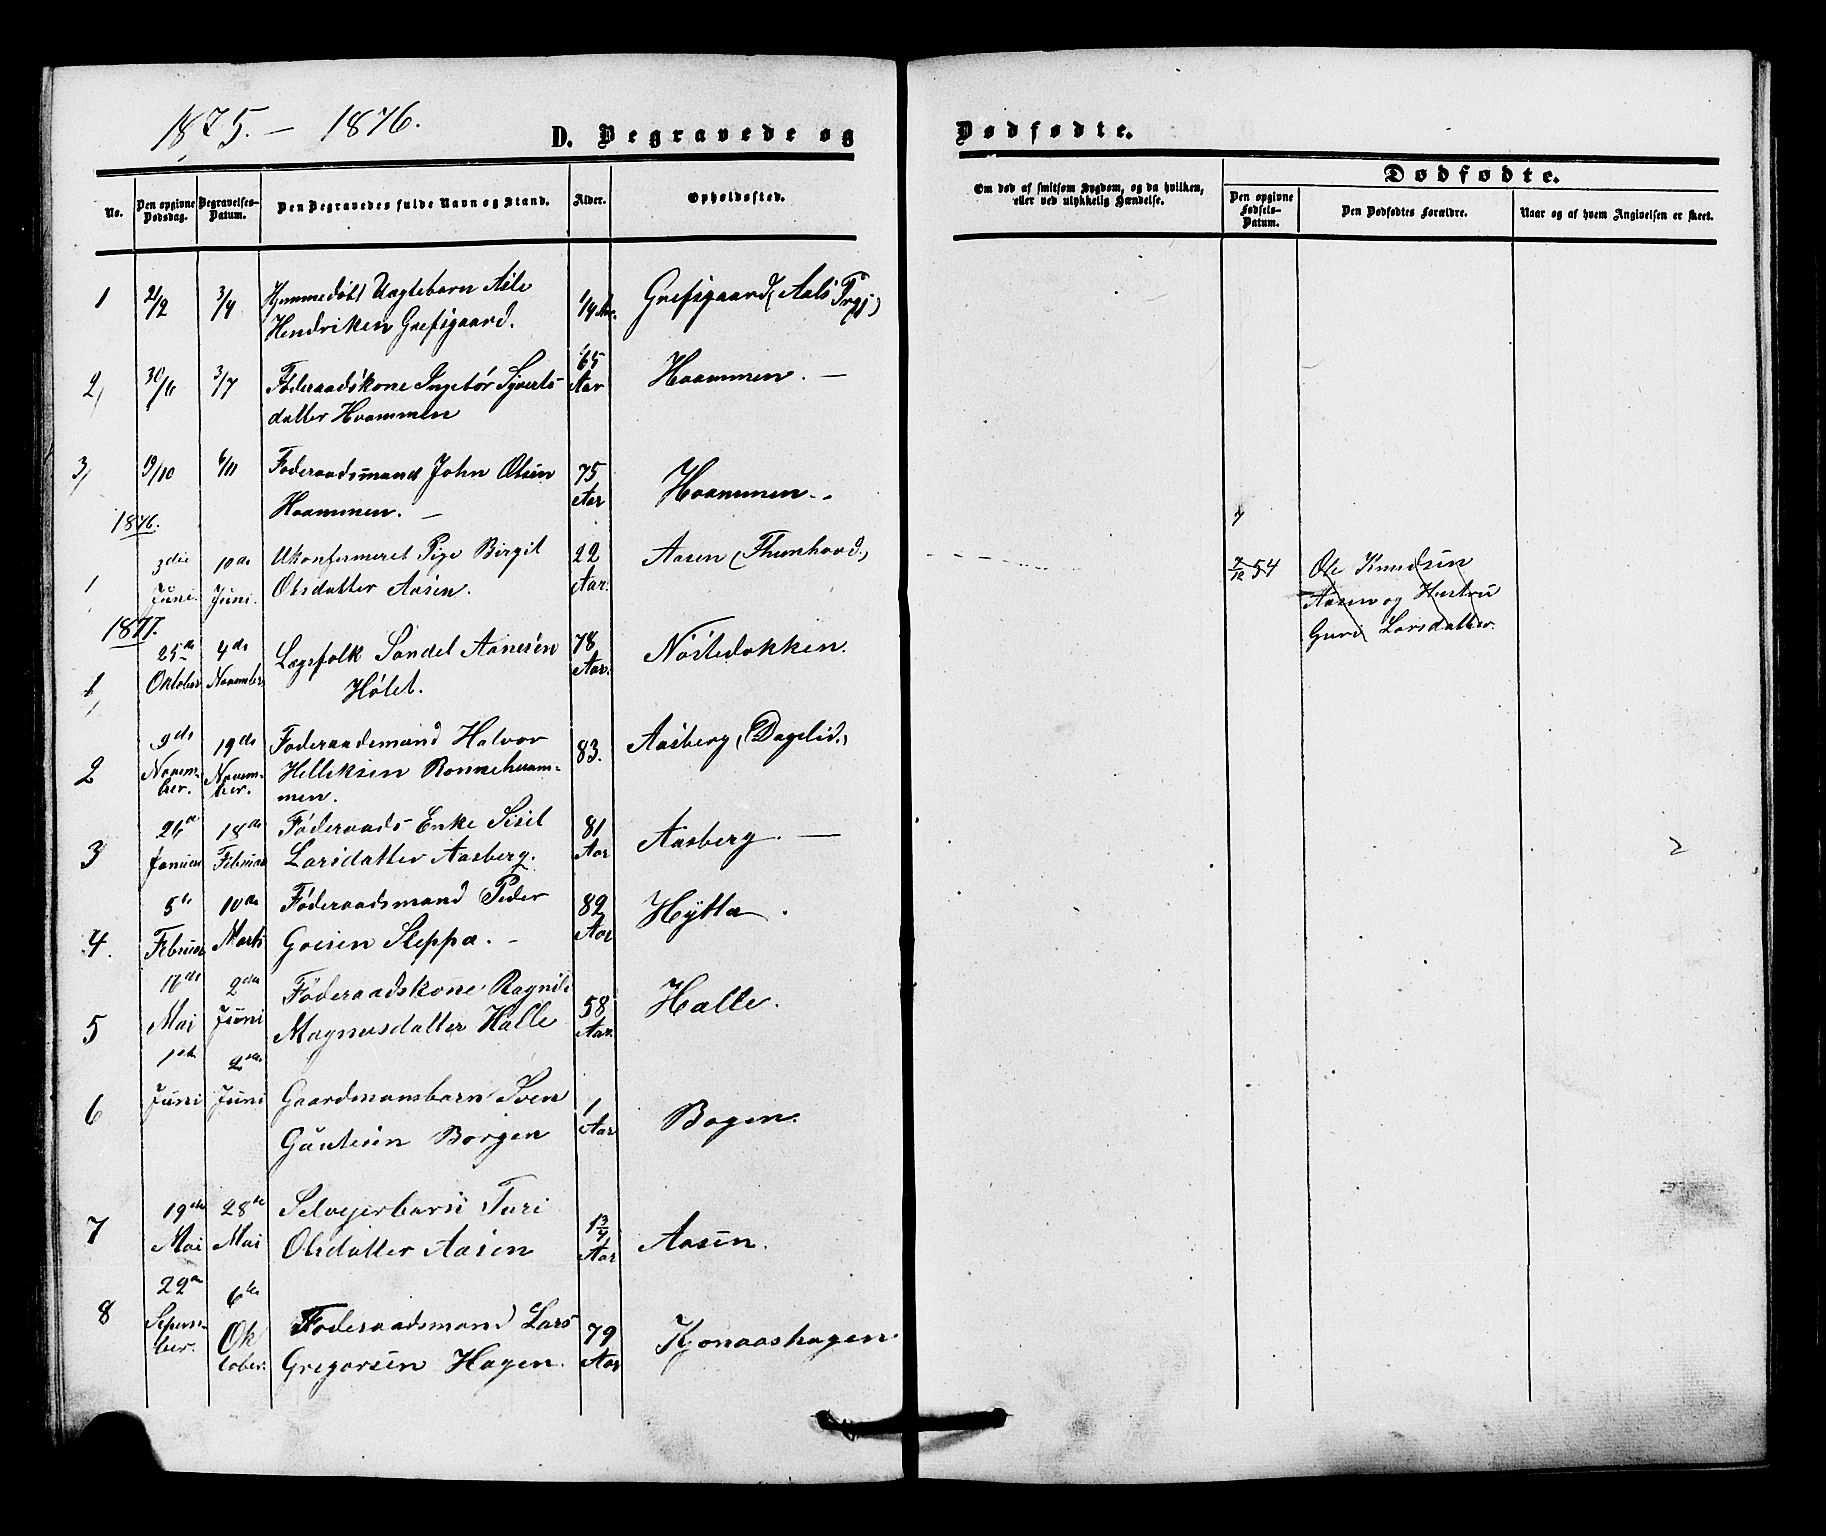 1875. – 1876.
D. Begravede og
Dødfødte.
No.
Den opgivne Dødsdag.
Begravelses-Datum.
Den Begravedes fulde Navn og Stand.
Alder.
Opholdssted.
Om død af smitsom Sygdom, og da hvilken,
eller ved ulykkelig Hændelse.
Dødfødte.
Den opgivne Fødsels-Datum.
Den Dødfødtes Forældre.
Naar og af hvem Angivelsen er skeet.
1 2/2 3/4 Hjemmedøbt Uægtebarn Asle 1/4 Aar. Grefsgaard (Aals Prgj)
Hendriksen Grefsgaard.
2, 30/6 3/7 Føderaadskone Ingebør Syverts- 65 Aar Hvammen. –
datter Hvammen
3, 19/10 6/11 Føderaadsmand John Olsen 75 Aar Hvammen. –
Hvammen. –
1876.
1 3die Juni. 10de Juni. Ukonfirmeret Pige Birgit 22 Aar. Aasen (Thunhovd.)
Olsdatter Aasen.
7/12 54 Ole Knudsen
Aasen og Hustru
Guri Larsdatter.
1877.
1 25de Oktober 4de November Lægsfolk Sandel Aanesen 78 Aar. Nøstedokken.
Hølet.
2 9de November. 19de November. Føderaadsmand Halvor 83. Aasberg, (Dagelid.)
Helleksen Rennehvam-
men.
3 Januar 18de Februar Føderaads Enke Sisel 81 Aar Aasberg. –
Larsdatter Aasberg.
4. 5te Februar 10de Marts Føderaadsmand Peder 82 Aar Hytta.
Goesen Sleppa. –
5 Mai 2den Juni Føderaadskone Ragnil 58 Aar. Halle.
Magnusdatter Halle
6 1ste Juni 2den Juni Gaardmansbarn Sven 1 Aar Bogen.
Gautesen Borgen
7 19de Mai 28de Mai Selveierbarn Turi 1 3/4 Aar Aasen.
Olsdatter Aasen
8 29de September. 6te Oktober. Føderaadsmand Lars 79 Aar Kjonaashagen.
Gregorsen Hagen.